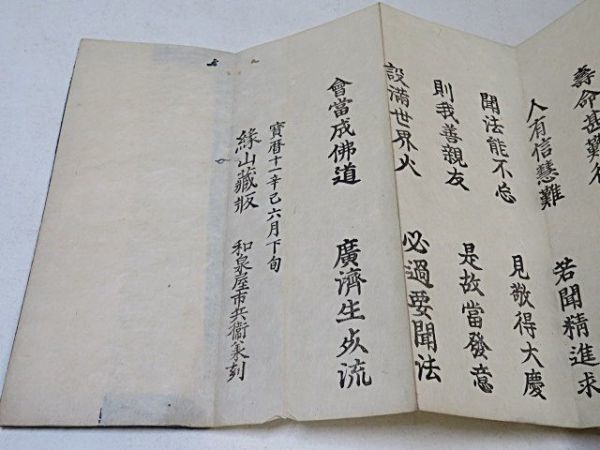 壽命甚難
若聞精進求
人有信慧難
聞法能不忘
見敬得大慶
則我善親友
是故當發意
設滿世界火
必過要聞法
會當成佛道
廣濟生死流
寶暦十一辛巳六月下旬
緣山藏版
和泉屋市兵衞刻